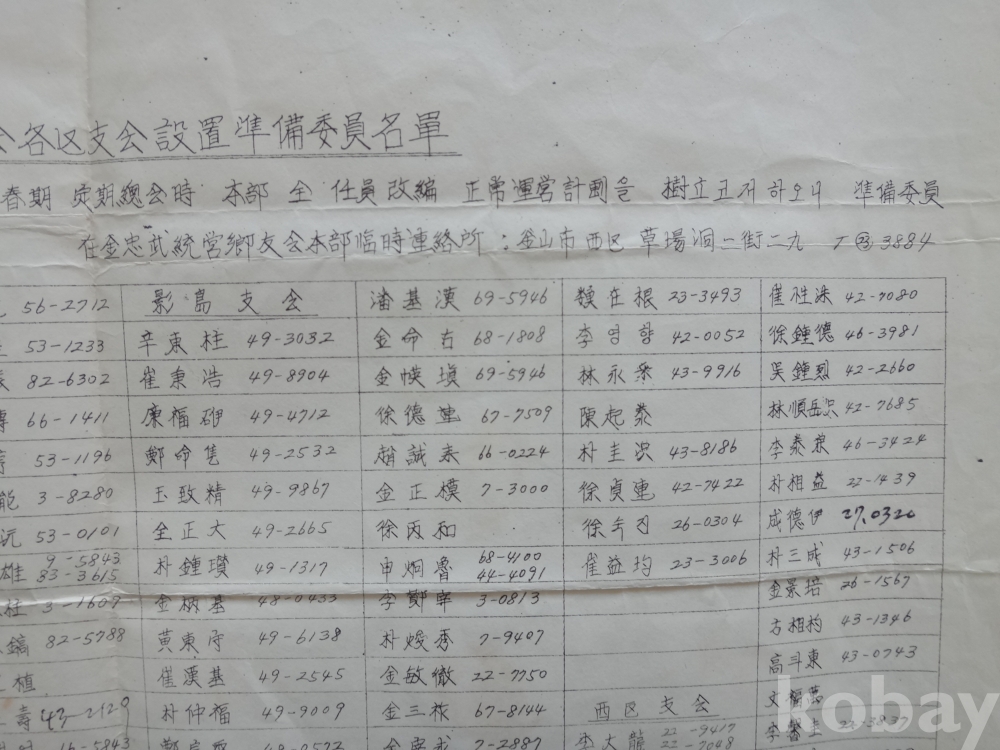 各区支会設置準備委員名單
春期 定期總会時 本部 全 任員改編 正常運営計劃을 樹立코저하오니 準備委員
在金忠武統営鄉友会本部臨時連絡所 : 釜山市 西区 草場洞一街二九 T㉓3884
56-2712 影島支会 潘基漢 69-5946 魏在根 23-3493 崔性洙 42-7080
53-1233 辛東柱 49-3032 金命右 68-1808 李영항 42-0052 徐鍾德 46-3981
82-6302 崔秉浩 49-8904 金 69-5946 林永 43-9916 吳鍾烈 42-2660
66-1411 康福 49-4712 徐德連 67-7509 陳起泰 林順岳 42-7685
53-1196 鄭命隻 49-2532 趙誠泰 66-0224 朴圭洪 43-8186 李泰兼 46-3424
能 3-8280 玉致精 49-9867 金正模 7-3000 徐貞連 42-7422 朴相益 22-1439
沅 53-0101 全正大 49-2665 徐丙和 徐 26-0304 成德伊 27.0320
雄 9-5843 83-3615 朴鍾瓚 49-1317 申炯魯 68-4100 44-4091 崔益均 23-3006 朴三成 43-1506
柱 3-1609 金炳基 48-0433 李鄭宰 3-0813 金景培 26-1567
鎬 82-5788 黄東守 49-6138 朴焌秀 7-9407 方相杓 43-1346
植 崔漢基 49-2545 金敏徹 22-7750 高斗東 43-0743
壽 43-2129 朴仲福 49-9009 金三株 67-8144 西区支会 文福萬
16-5843 49-0572 7-2887 李大龍 22-9417 22-7048 李 22-3837
lobay